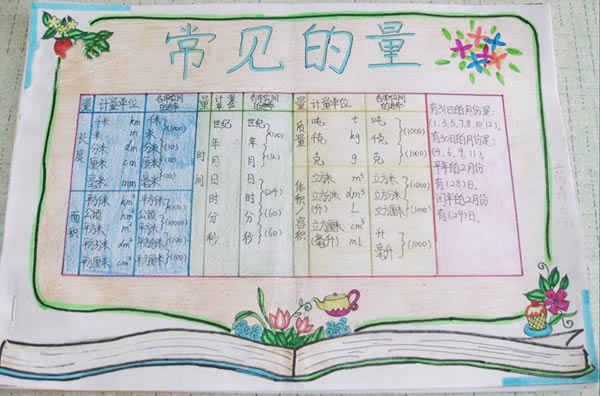 常见的量
量 计量单位
长度
千米 km
米 m
分米 dm
厘米 cm
毫米 mm
千米
米
分米
厘米
毫米
(1000)
(10)
(10)
(10)
面积
平方千米 km²
公顷 hm²
平方米 m²
平方分米 dm²
平方厘米 cm²
平方千米
公顷
平方米
平方分米
平方厘米
(100)
(10000)
(100)
(100)
量
时间
世纪
年
月
日
时
分
秒
世纪
年
月
日
时
分
秒
(100)
(12)
(24)
(60)
(60)
量 计量单位
质量
吨 t
千克 kg
克 g
吨
千克
克
(1000)
(1000)
体积/容积
立方米 m³
立方分米 dm³
(升) L
立方厘米 cm³
(毫升) ml
立方米
立方分米
立方厘米
(1000)
(1000)
升
毫升
(1000)
有31日的月份是:
(1,3,5,7,8,10,12).
有30日的月份是:
(4,6,9,11).
平年的2月份
有(28)日.
闰年的2月份
有(29)日.